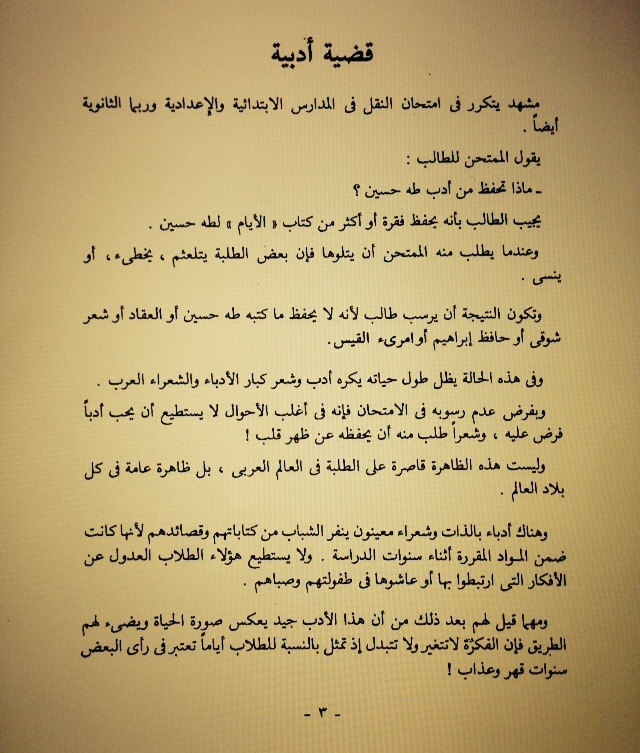 قضية أدبية
مشهد يتكرر فى امتحان النقل فى المدارس الابتدائية والإعدادية وربما الثانوية
أيضاً .
يقول الممتحن للطالب :
ـ ماذا تحفظ من أدب طه حسين ؟
يجيب الطالب بأنه يحفظ فقرة أو أكثر من كتاب « الأيام » لطه حسين .
وعندما يطلب منه الممتحن أن يتلوها فإن بعض الطلبة يتلعثم ، يخطىء ، أو
ينسى .
وتكون النتيجة أن يرسب طالب لأنه لا يحفظ ما كتبه طه حسين أو العقاد أو شعر
شوقى أو حافظ إبراهيم أو امرىء القيس.
وفى هذه الحالة يظل طول حياته يكره أدب وشعر كبار الأدباء والشعراء العرب .
وبفرض عدم رسوبه فى الامتحان فإنه فى أغلب الأحوال لا يستطيع أن يحب أدباً
فرض عليه ، وشعراً طلب منه أن يحفظه عن ظهر قلب !
وليست هذه الظاهرة قاصرة على الطلبة فى العالم العربى ، بل ظاهرة عامة فى كل
بلاد العالم .
وهناك أدباء بالذات وشعراء معينون ينفر الشباب من كتاباتهم وقصائدهم لأنها كانت
ضمن المواد المقررة أثناء سنوات الدراسة . ولا يستطيع هؤلاء الطلاب العدول عن
الأفكار التى ارتبطوا بها أو عاشوها فى طفولتهم وصباهم .
ومهما قيل لهم بعد ذلك من أن هذا الأدب جيد يعكس صورة الحياة ويضىء لهم
الطريق فإن الفكرة لا تتغير ولا تتبدل إذ تمثل بالنسبة للطلاب أياماً تعتبر فى رأى البعض
سنوات قهر وعذاب !
- ٣ -